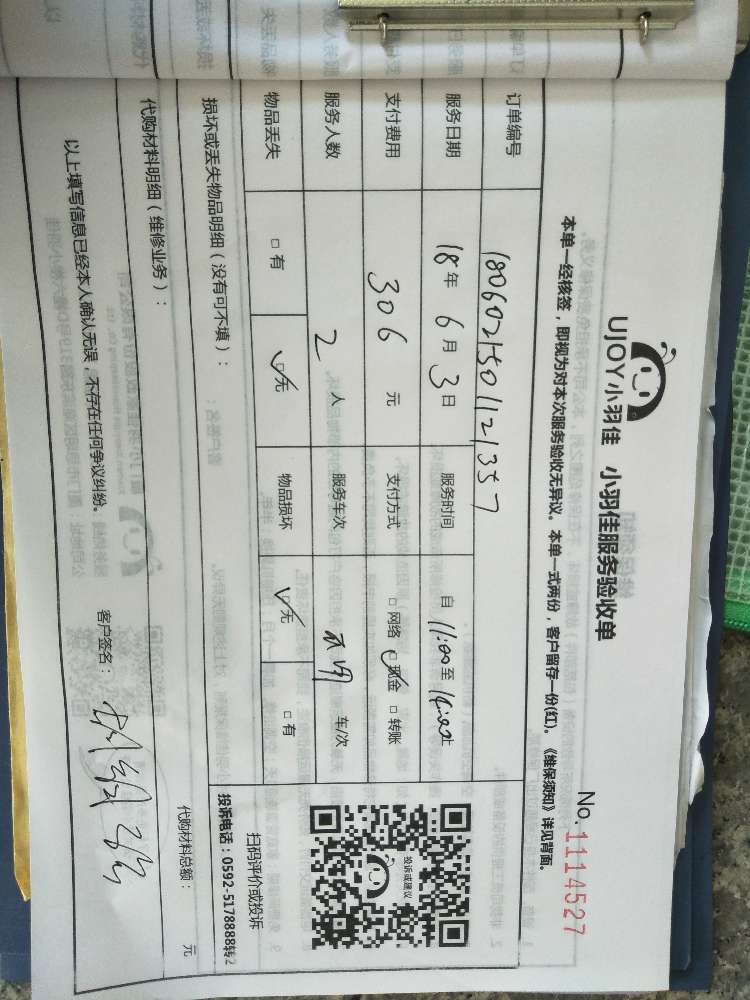 UJOY小羽佳 小羽佳服务验收单
No. 1114527
本单一经核签，即视为对本次服务验收无异议。本单一式两份，客户留存一份(红)。《维保须知》详见背面。
订单编号 1806021501121357
服务日期 18年 6月 3日 服务时间 自 11:00 至 14:00 止
支付费用 306 元 支付方式 □网络 ☑现金 □转账
服务人数 2 人 服务车次 车/次
物品丢失 □有 ☑无 物品损坏 ☑无 □有
投诉或建议
扫码评价或投诉
投诉电话：0592-5178888转2
损坏或丢失物品明细（没有可不填）：
代购材料明细（维修业务）：
代购材料总额： 元
以上填写信息已经本人确认无误，不存在任何争议纠纷。
客户签名：